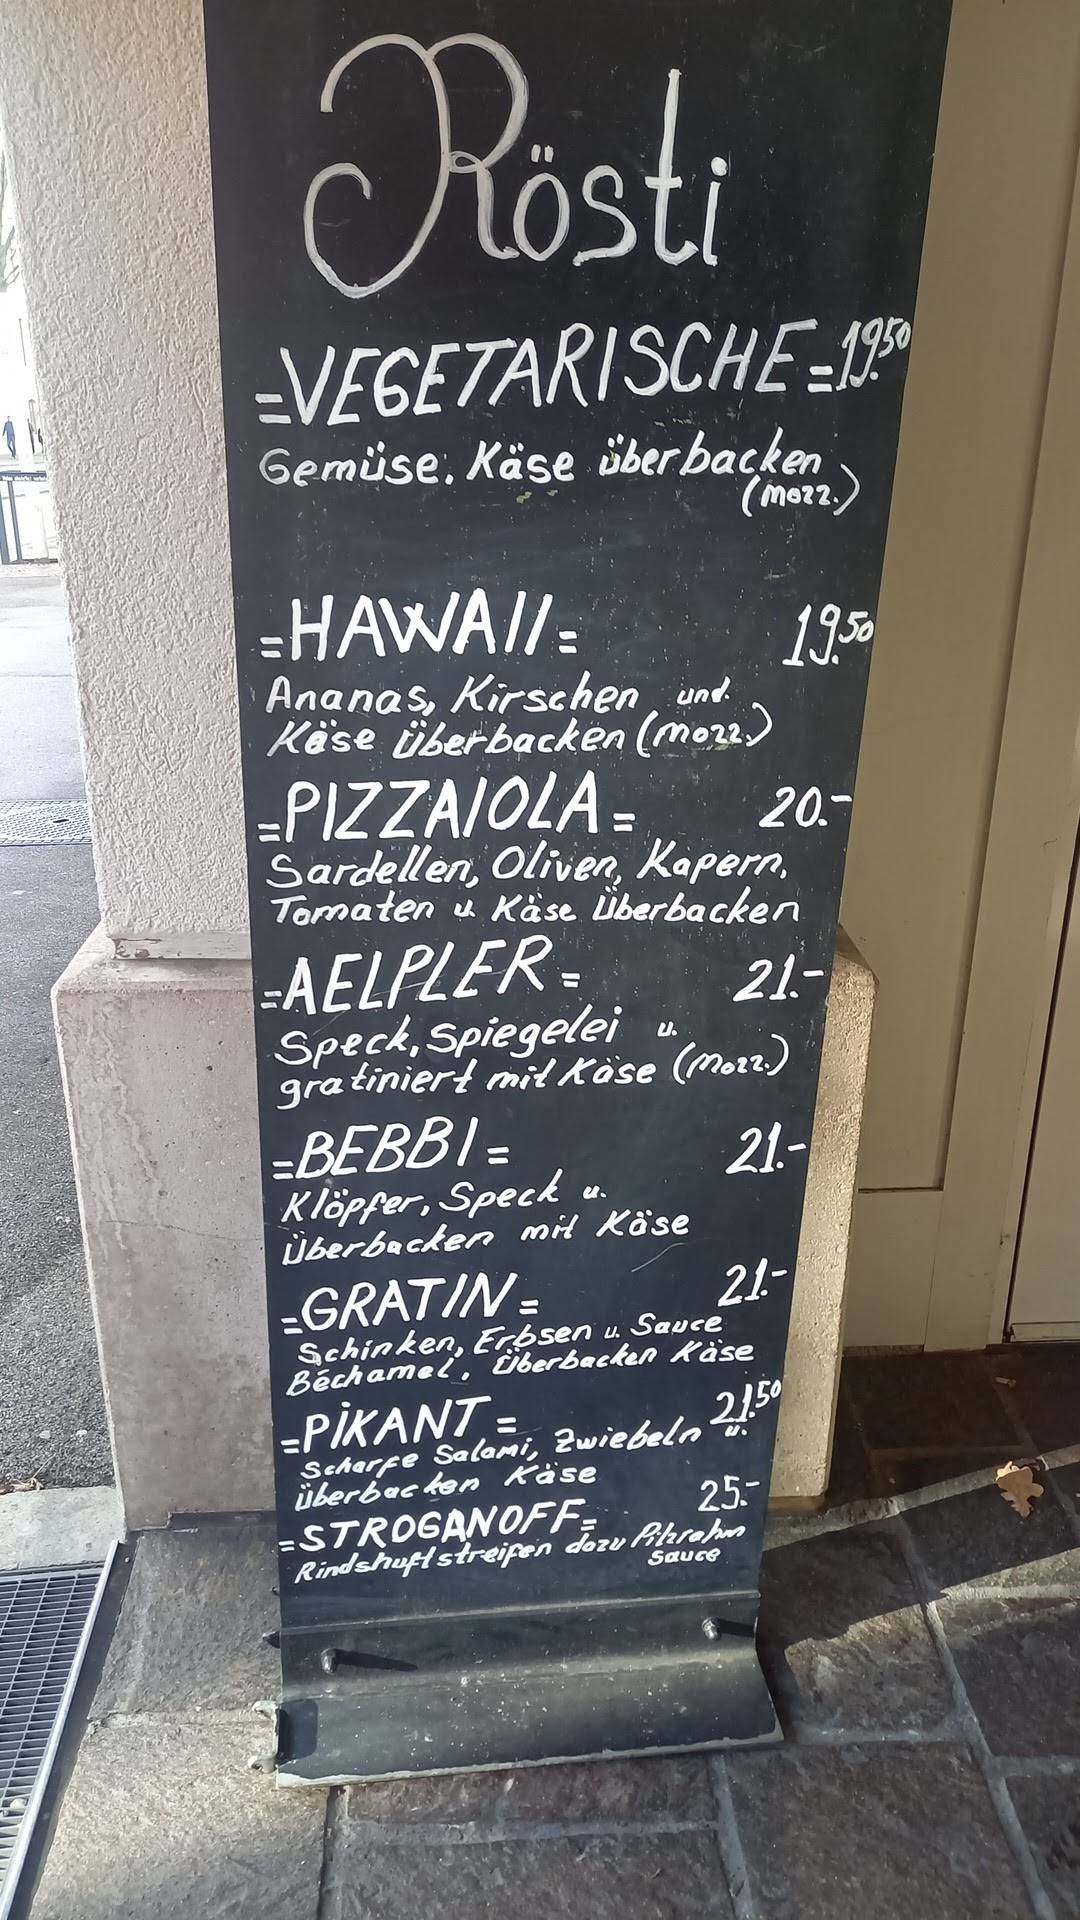 Rösti
=VEGETARISCHE= 19.50
Gemüse. Käse überbacken
(mozz.)
=HAWAII= 19.50
Ananas, Kirschen und.
Käse Überbacken (mozz.)
=PIZZAIOLA= 20.-
Sardellen, Oliven, Kapern,
Tomaten u. Käse Überbacken
=AELPLER= 21.-
Speck, Spiegelei u.
gratiniert mit Käse (mozz.)
=BEBBI= 21.-
Klöpfer, Speck u.
Überbacken mit Käse
=GRATIN= 21.-
Schinken, Erbsen u. Sauce
Béchamel. Überbacken Käse
=PiKANT= 21.50
Scharfe Salami, Zwiebeln u.
Überbacken Käse
=STROGANOFF= 25.-
Rindshuftstreifen dazu Pilzrahm
Sauce